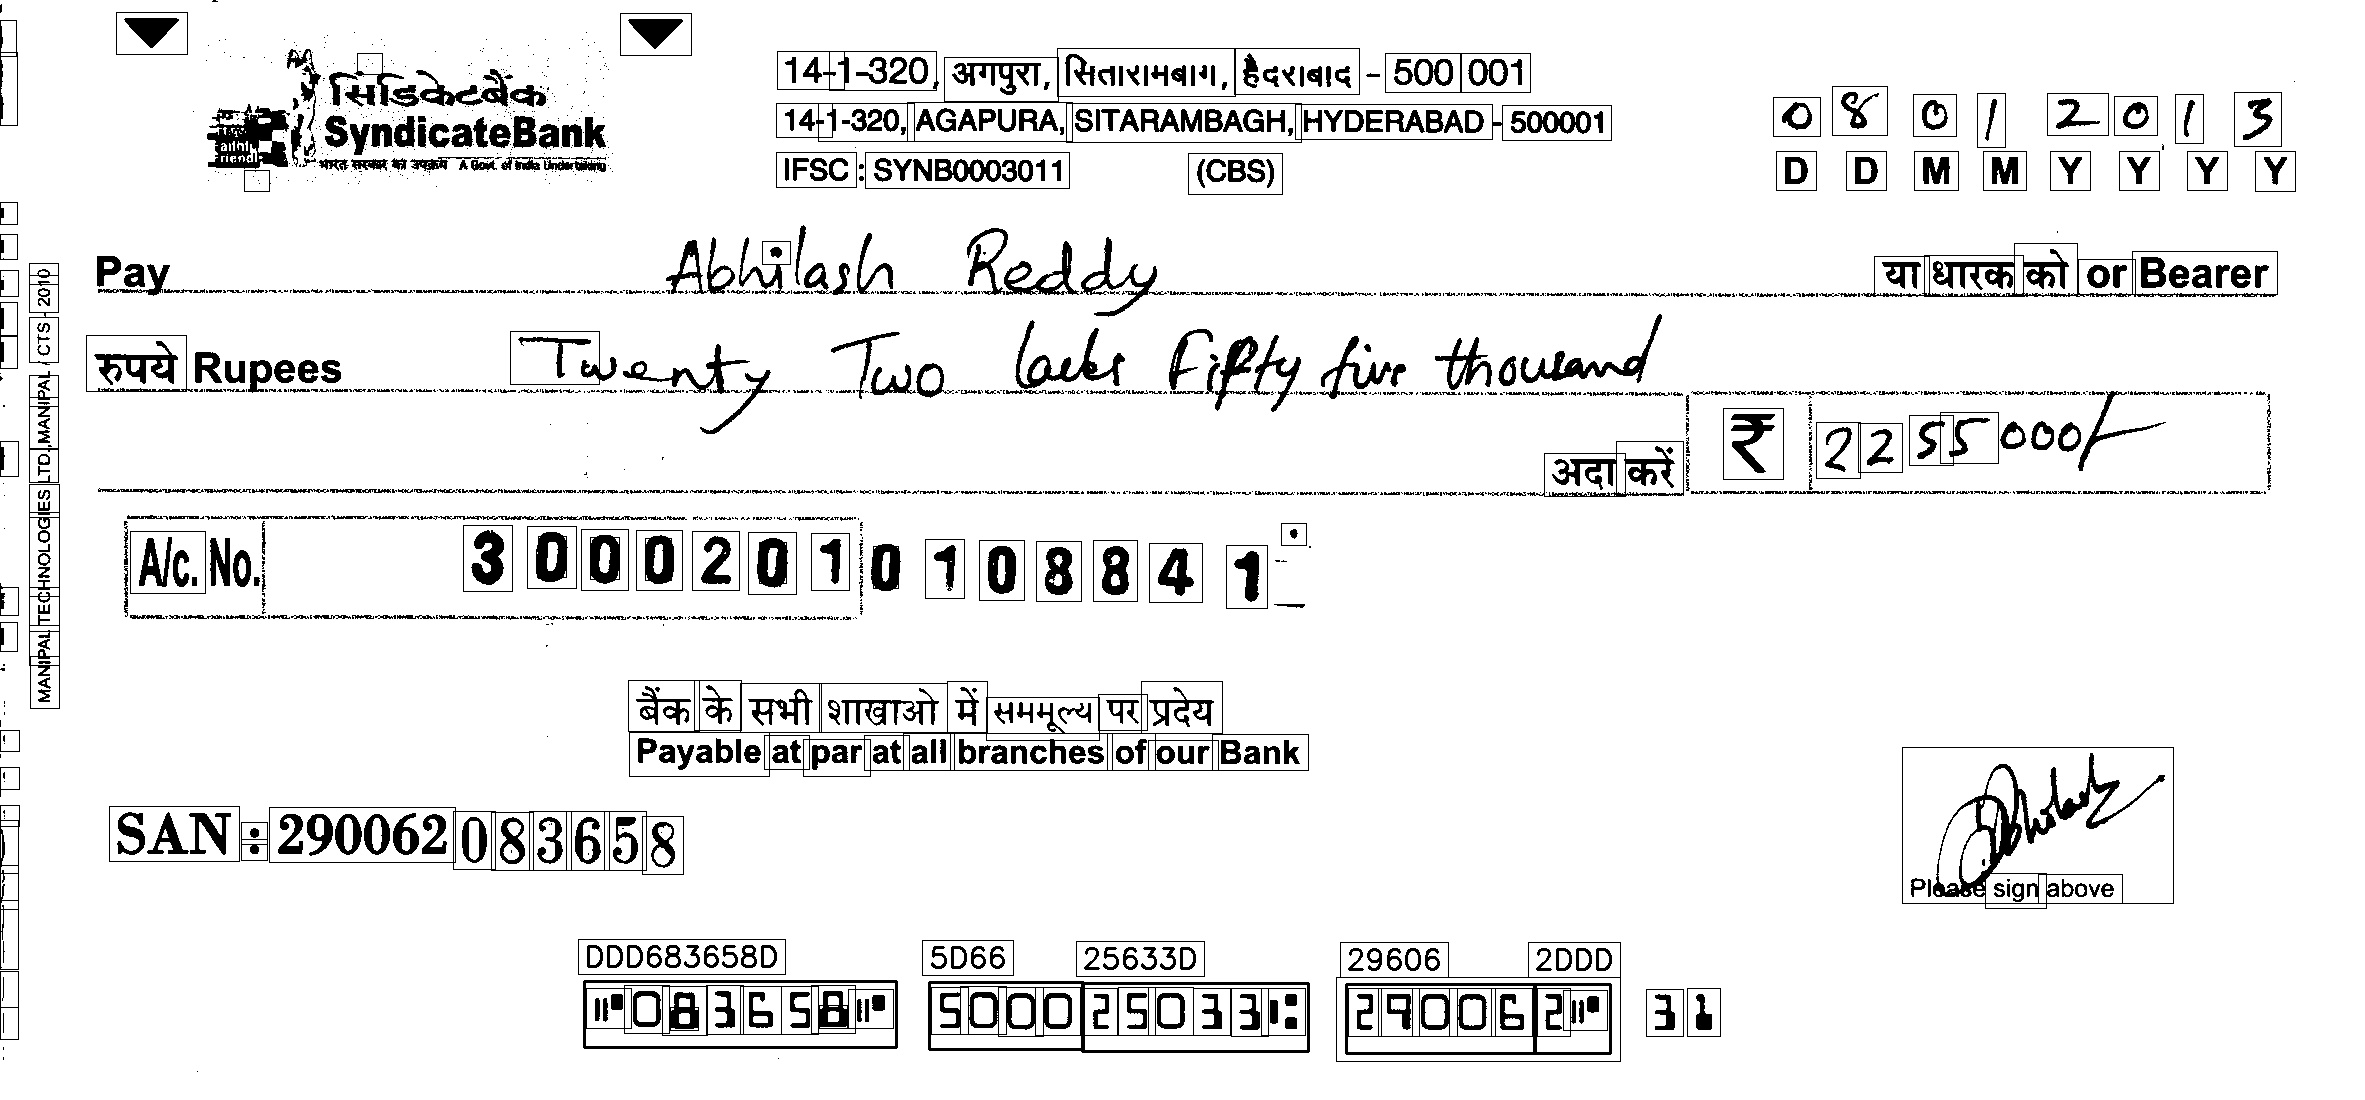 सिंडिकेटबैंक
SyndicateBank
भारत सरकार का उपक्रम A Govt. of India Undertaking
14-1-320, अगपुरा, सितारामबाग, हैदराबाद - 500 001
14-1-320, AGAPURA, SITARAMBAGH, HYDERABAD - 500001
IFSC : SYNB0003011 (CBS)
0 8 0 1 2 0 1 3
D D M M Y Y Y Y
Pay Abhilash Reddy या धारक को or Bearer
रुपये Rupees Twenty Two lacks Fifty five thousand
अदा करें ₹ 2255000/-
A/c. No. 30002010108841
MANIPAL TECHNOLOGIES LTD.,MANIPAL / CTS - 2010
बैंक के सभी शाखाओ में सममूल्य पर प्रदेय
Payable at par at all branches of our Bank
SAN : 290062 083658
Abhilash
Please sign above
DDD683658D 5D66 25633D 29606 2DDD
⑈083658⑈ 500025033⑆ 290062⑈ 31